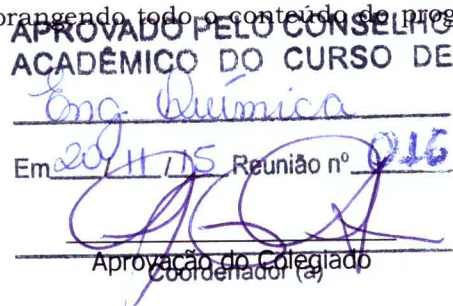 orangendo todo o conteúdo do prog
APROVADO PELO CONSELHO
ACADÊMICO DO CURSO DE
Eng. Química
Em 20/11/15 Reunião nº 016
Aprovação do Colegiado
Coordenador (a)